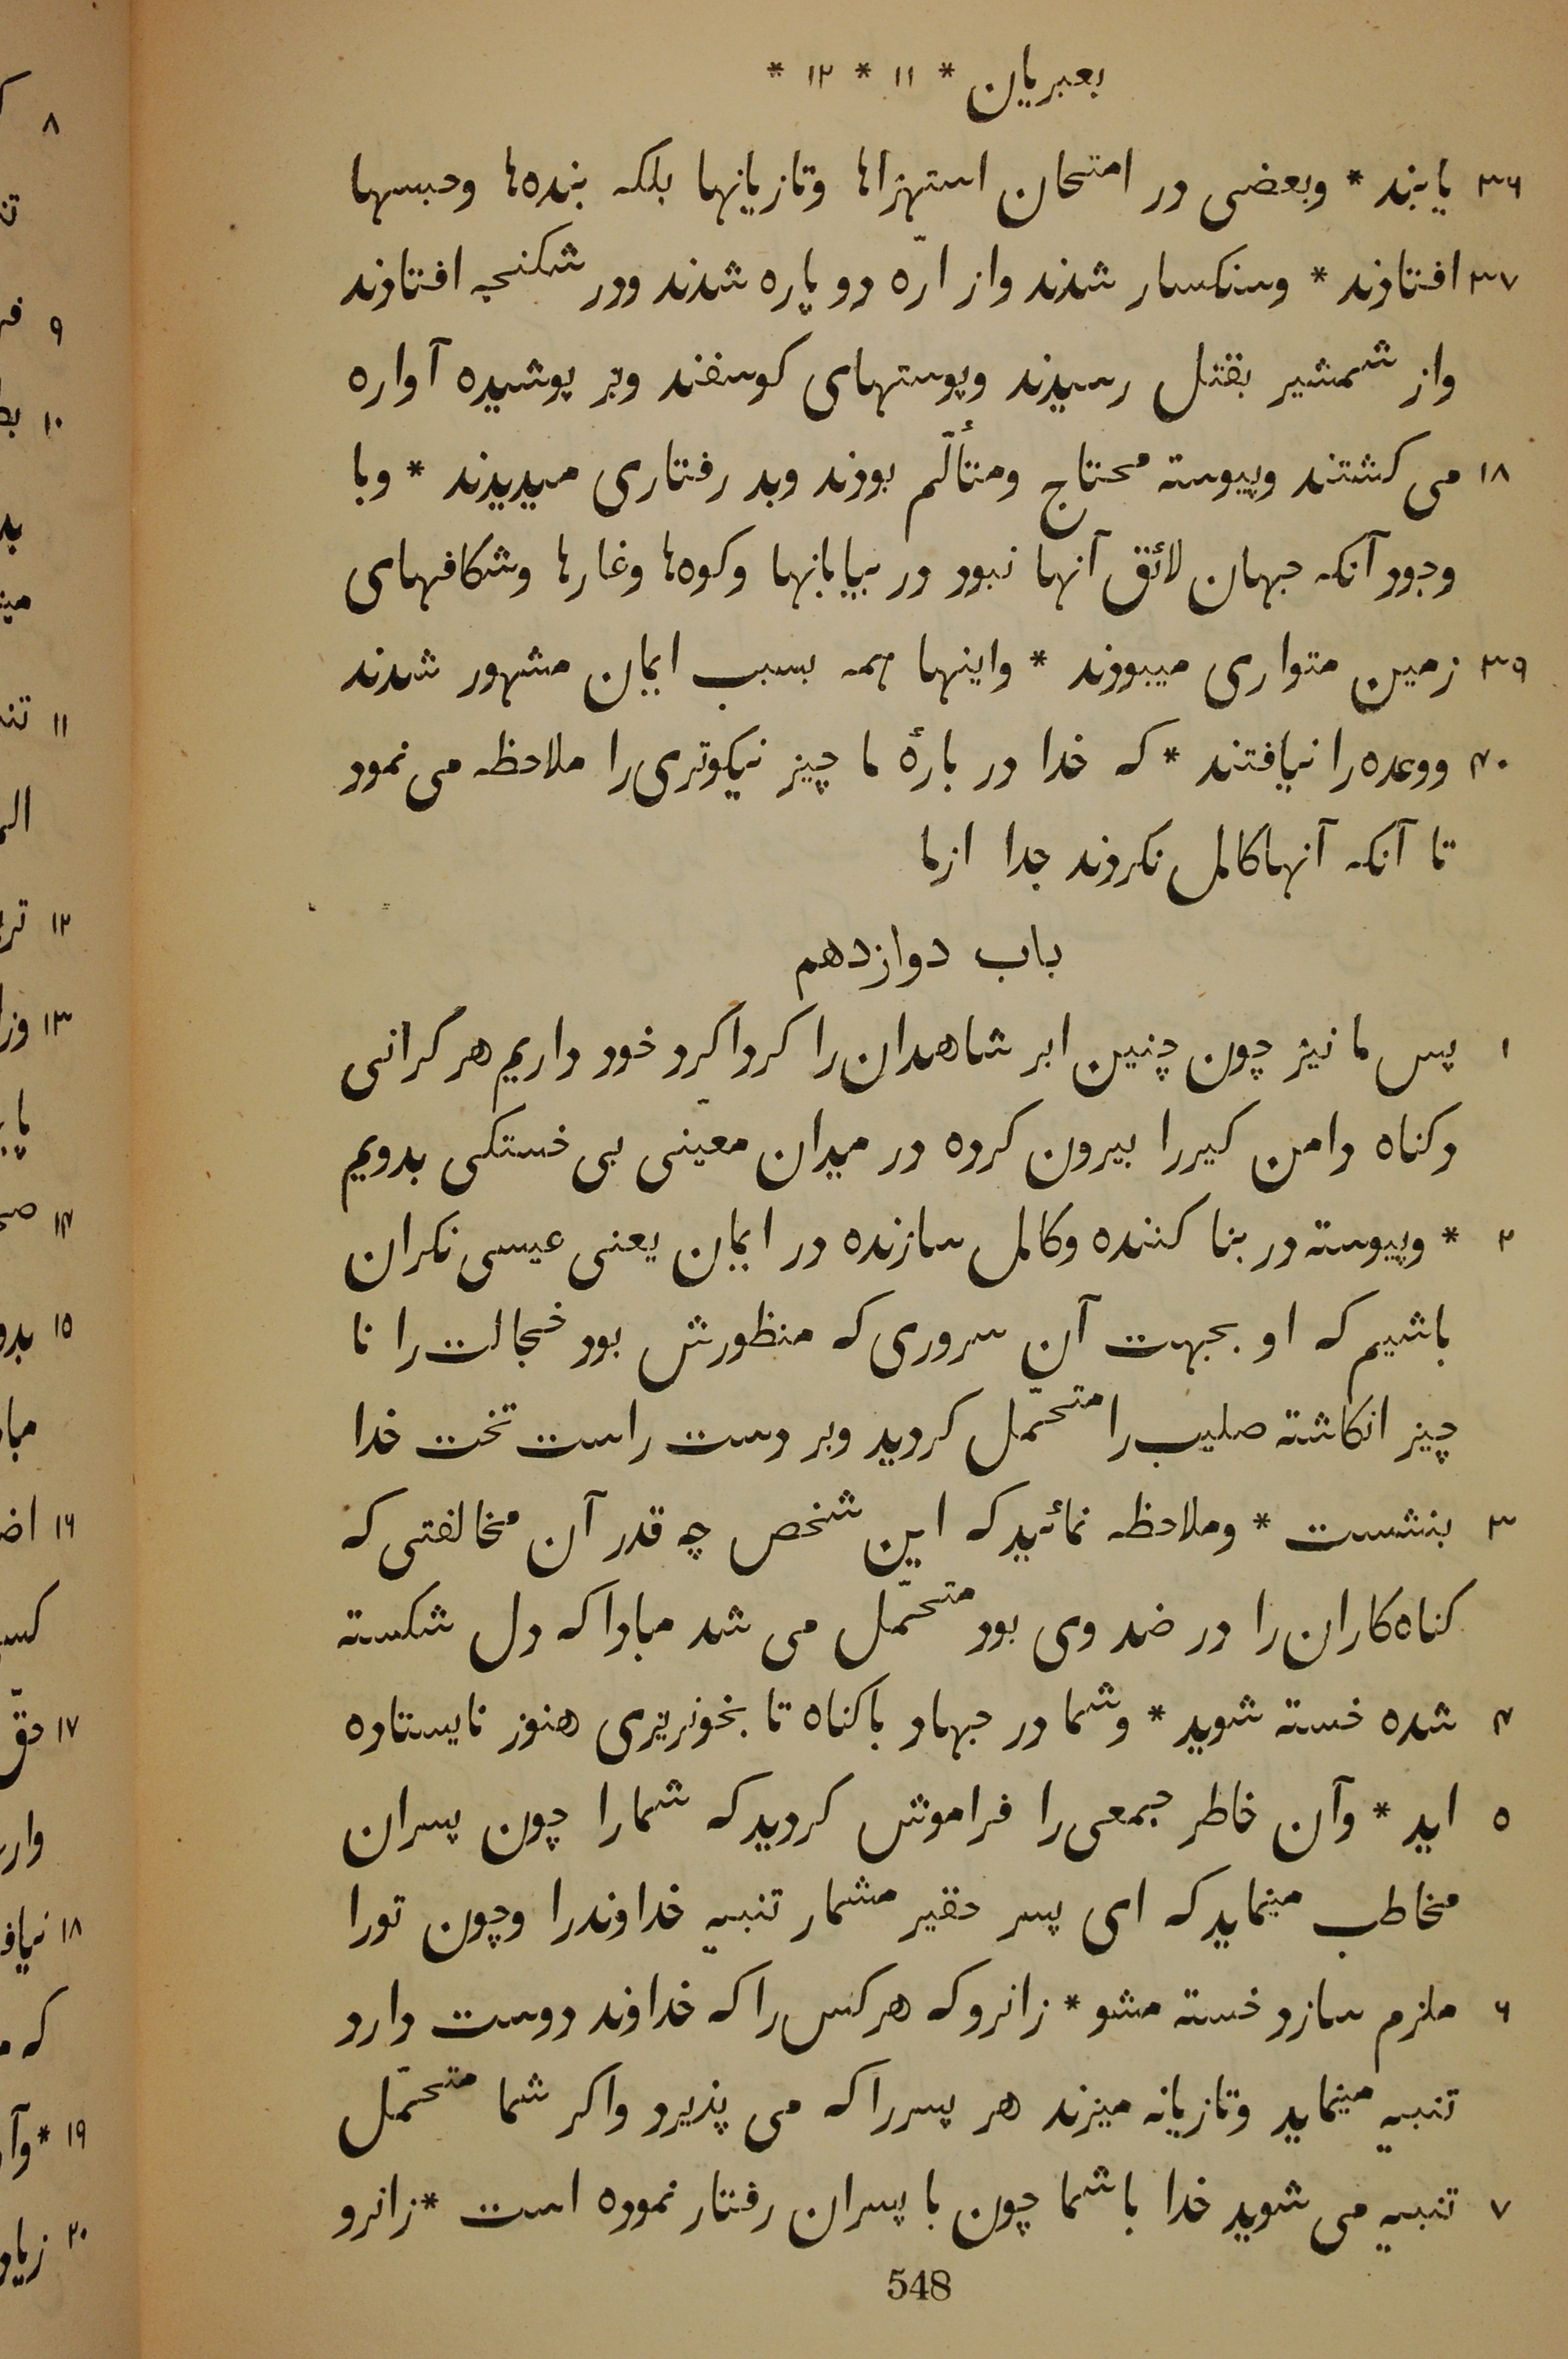 بعبریان * ۱۱ * ۱۲ *
۳۶ یابند * وبعضی در امتحان استهزاها وتازیانها بلکه بندهها وحبسها
۳۷ افتادند * وسنکسار شدند واز ارّه دو پاره شدند ودر شکنجه افتادند
واز شمشیر بقتل رسیدند وپوستهای کوسفند وبز پوشیده آواره
۱۸ می کشتند وپیوسته محتاج ومتألّم بودند وبد رفتاری میدیدند * وبا
وجود آنکه جهان لائق آنها نبود در بیابانها وکوهها وغارها وشکافهای
۳۹ زمین متواری میبودند * واینها همه بسبب ایمان مشهور شدند
۴۰ ووعده را نیافتند * که خدا در بارهٔ ما چیز نیکوتری را ملاحظه می نمود
تا آنکه آنها کامل نکردند جدا ازما
باب دوازدهم
۱ پس ما نیز چون چنین ابر شاهدان را کرداکرد خود داریم هر کرانی
وکناه دامن کیررا بیرون کرده در میدان معینی بی خستکی بدویم
۲ * وپیوسته در بنا کننده وکامل سازنده در ایمان یعنی عیسی نکران
باشیم که او بجهت آن سروری که منظورش بود خجالت را نا
چیز انکاشته صلیب را متحمّل کردید وبر دست راست تخت خدا
۳ بنشست * وملاحظه نمائید که این شخص چه قدر آن مخالفتی که
کناه‌کاران را در ضد وی بود متحمّل می شد مبادا که دل شکسته
۴ شده خسته شوید * وشما در جهاد باکناه تا بخونریزی هنوز نایستاده
۵ اید * وآن خاطر جمعی را فراموش کردید که شمارا چون پسران
مخاطب مینماید که ای پسر حقیر مشمار تنبیه خداوندرا وچون تورا
۶ ملزم سازد خسته مشو * زانرو که هرکس را که خداوند دوست دارد
تنبیه مینماید وتازیانه میزند هر پسررا که می پذیرد واکر شما متحمّل
۷ تنبیه می شوید خدا با شما چون با پسران رفتار نموده است * زانرو
548
۸
۹
۱۰
۱۱
۱۲
۱۳
۱۴
۱۵
۱۶
۱۷
۱۸
۱۹
۲۰